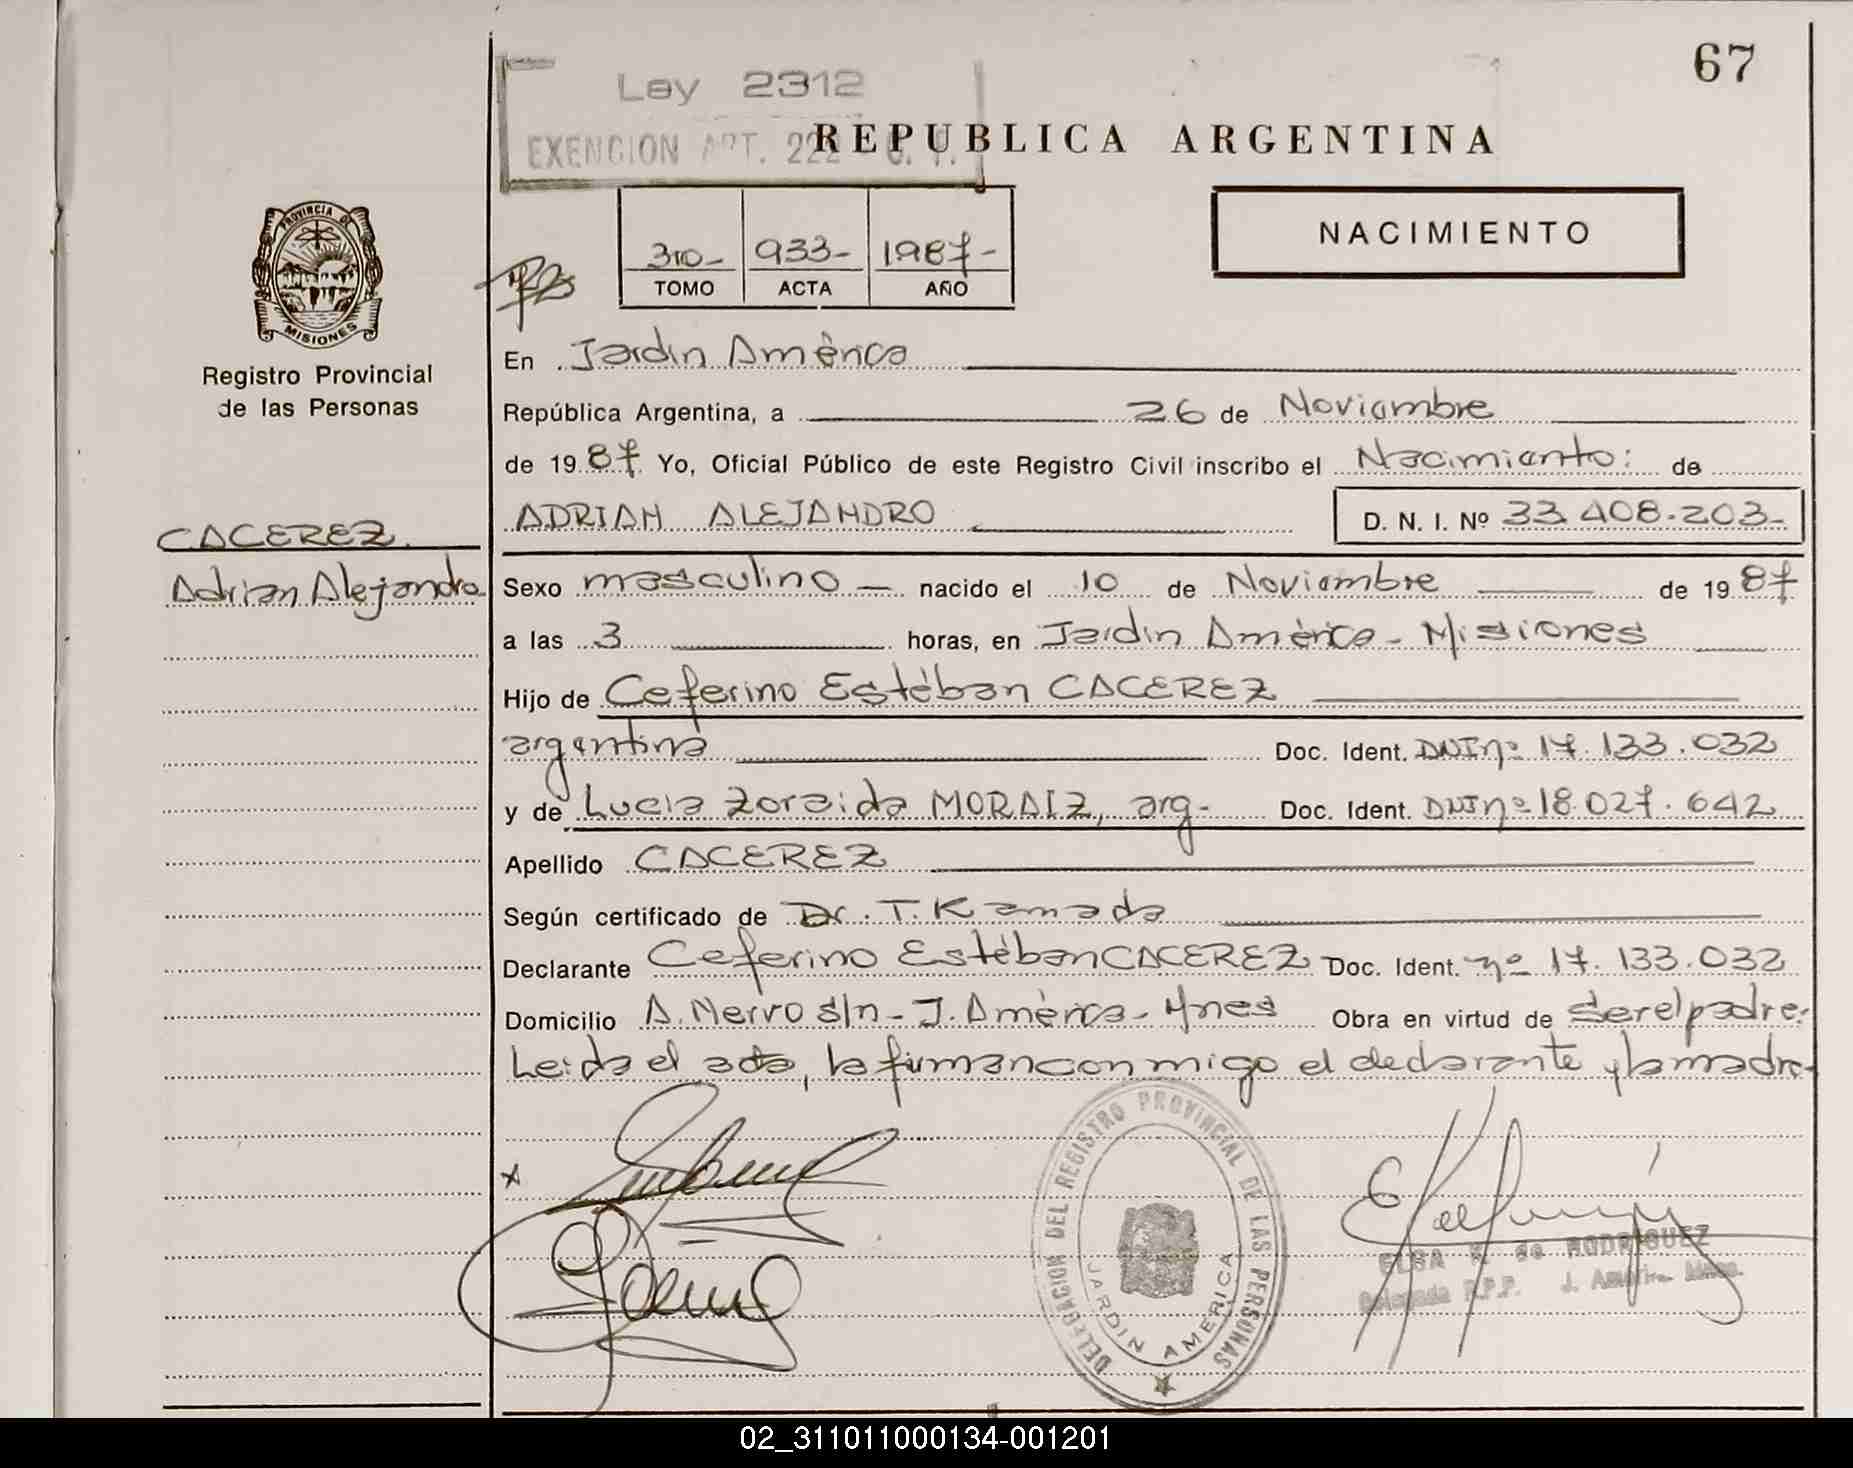 67
Ley 2312
EXENCION ART. 222 C. F.
REPUBLICA ARGENTINA
NACIMIENTO
310- 933- 1987-
TOMO ACTA AÑO
PROVINCIA DE
MISIONES
Registro Provincial
de las Personas
CACEREZ
Adrian Alejandro
En Jardin América
República Argentina, a 26 de Noviembre
de 1987 Yo, Oficial Público de este Registro Civil inscribo el Nacimiento: de
ADRIAN ALEJANDRO D. N. I. Nº 33.408.203-
Sexo masculino — nacido el 10 de Noviembre de 1987
a las 3 horas, en Jardin América - Misiones
Hijo de Ceferino Estéban CACEREZ
argentina Doc. Ident. DNI nº 17.133.032
y de Lucia Zoraida MORAIZ, arg- Doc. Ident. DNI nº 18.027.642
Apellido CACEREZ
Según certificado de Dr. T. Kamada
Declarante Ceferino Estéban CACEREZ Doc. Ident. nº 17.133.032
Domicilio A. Nervo s/n - J. América - Mnes Obra en virtud de ser el padre.
Leida el acta, la firman conmigo el declarante y la madre-
DELEGACION DEL REGISTRO PROVINCIAL DE LAS PERSONAS
JARDIN AMERICA
ELSA K. de RODRIGUEZ
Delegada R.P.P. J. América Mnes.
02_311011000134-001201